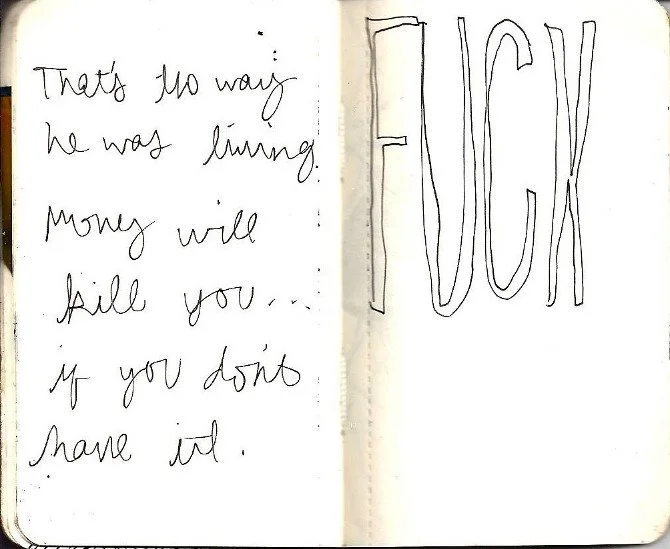 That's no way
he was living.
Money will
kill you...
if you don't
have it.
FUCK